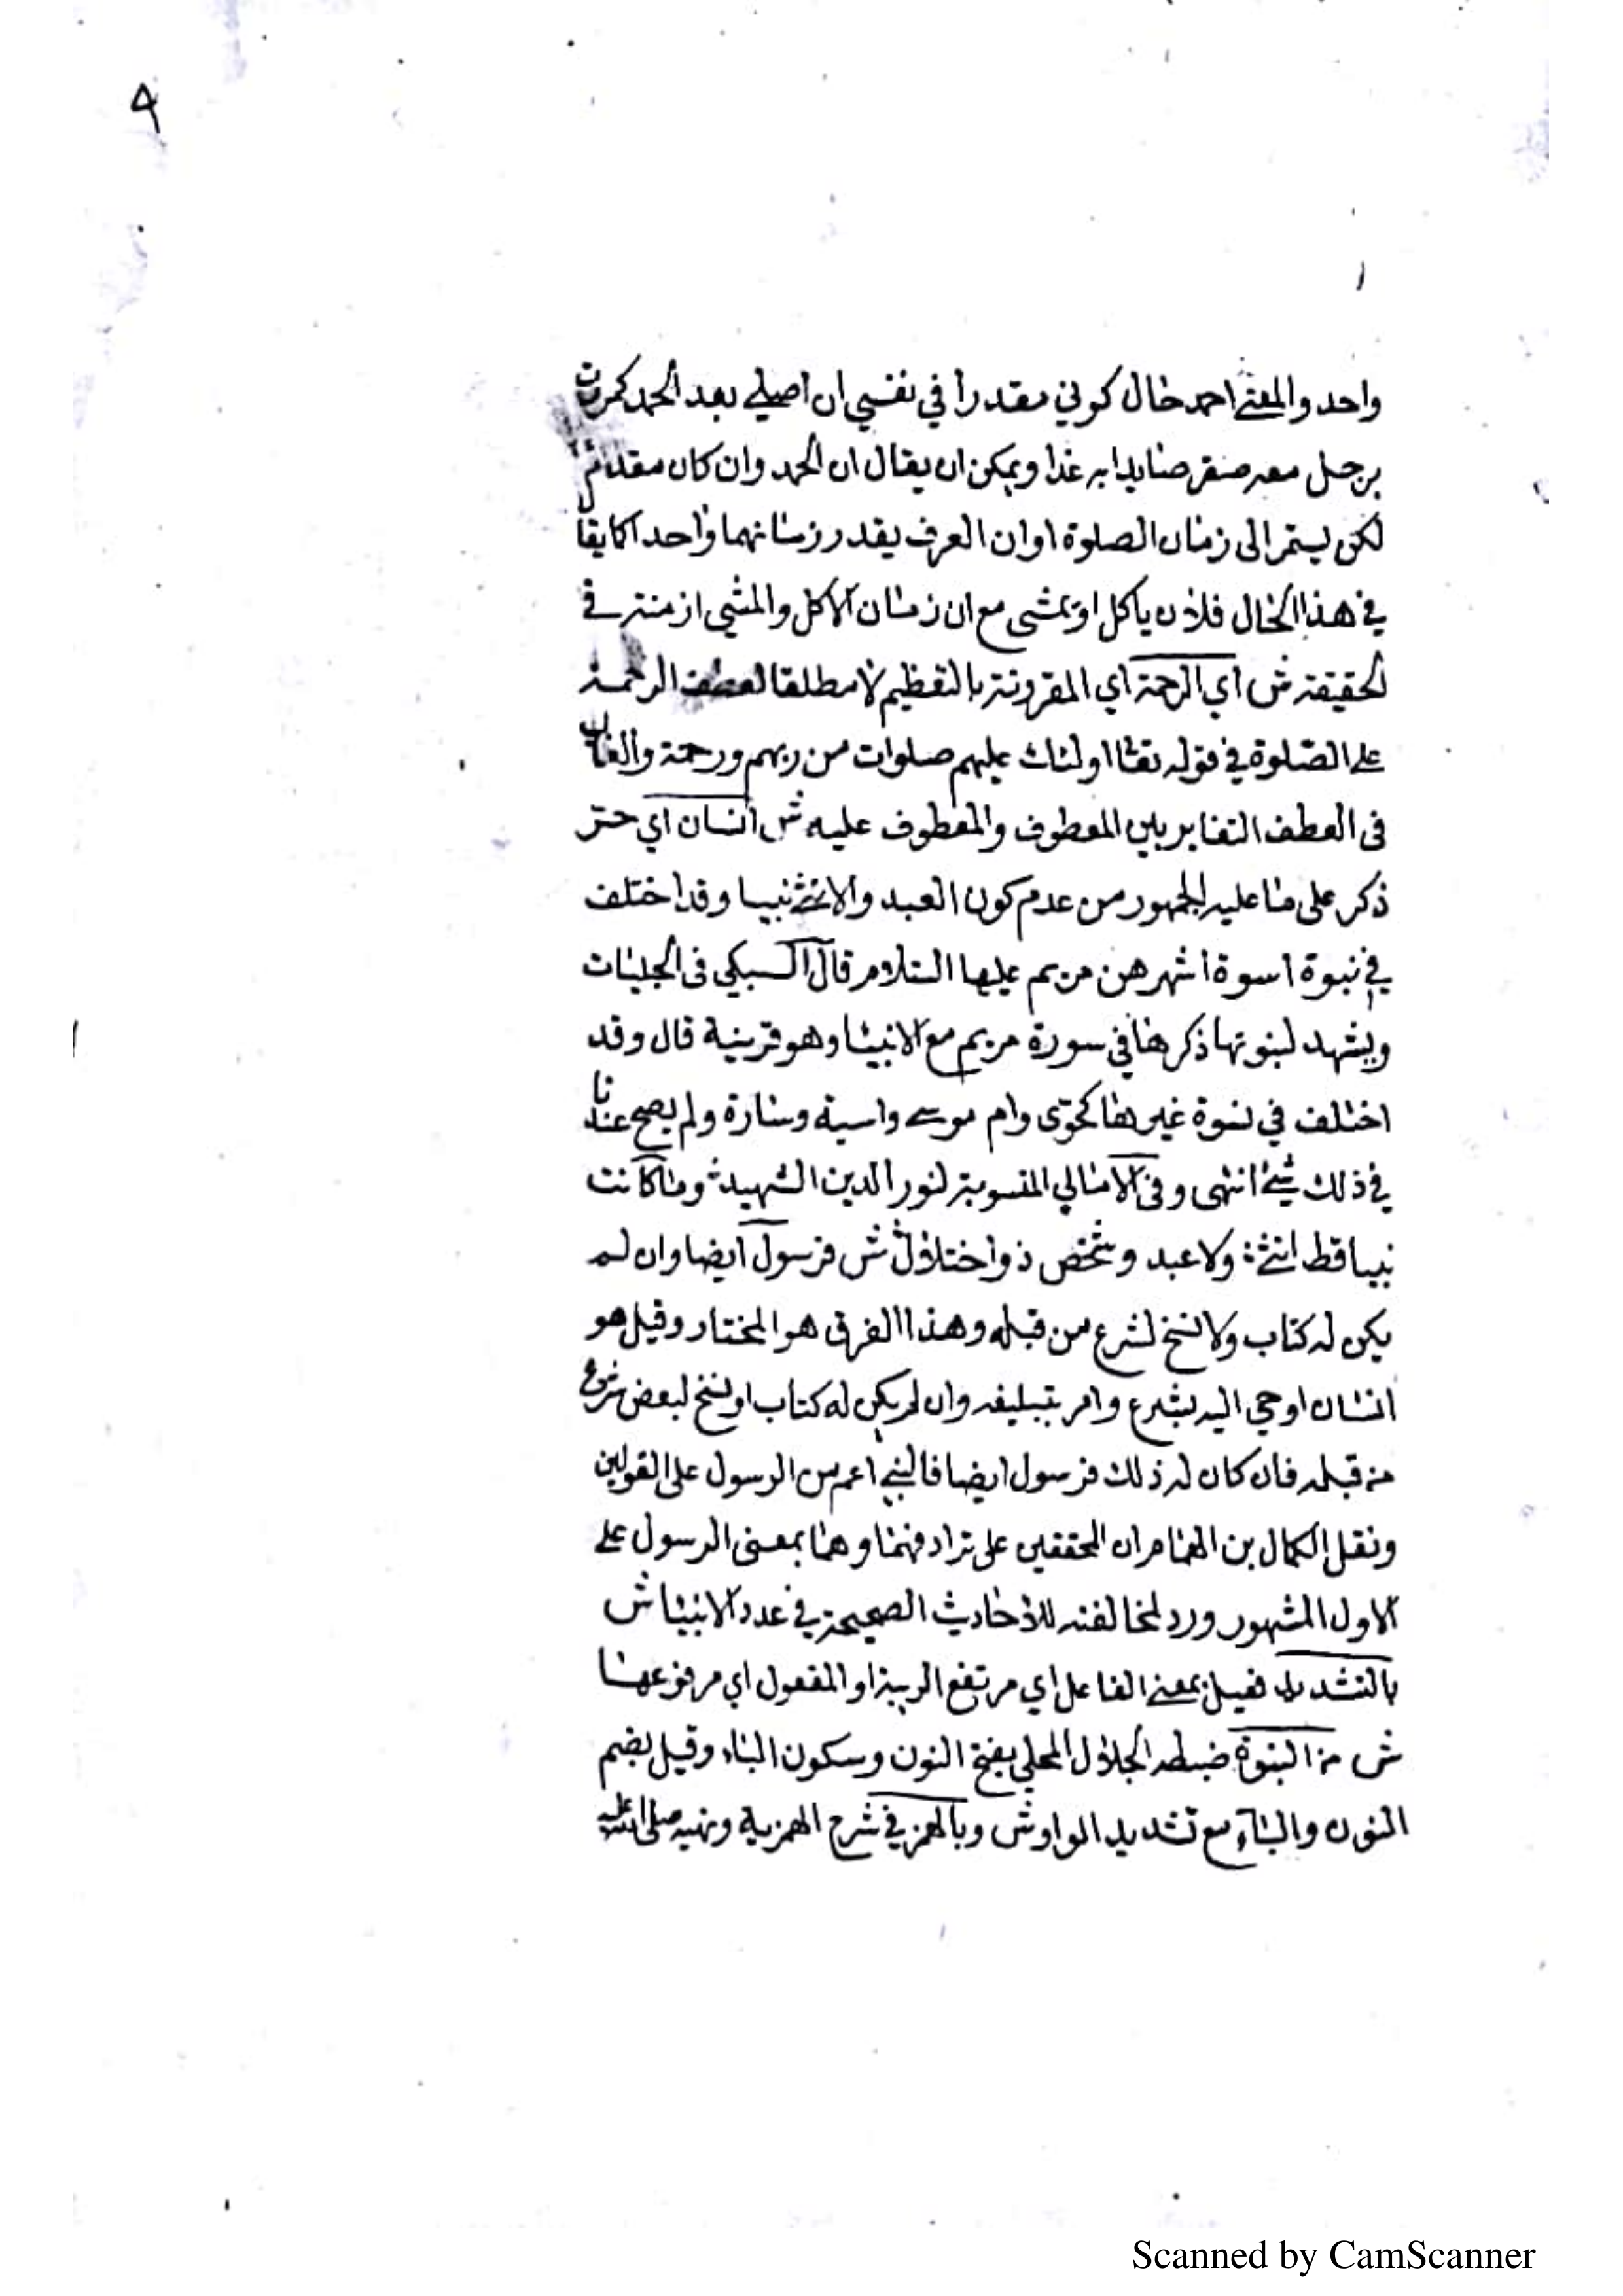 ٩
واحد والمعنى احمد حال كوني مقدرا في نفسي ان اصلي بعد الحمد كمررت
برجل معه صقر صايدا به غدا ويمكن ان يقال ان الحمد وان كان مقدما
لكن يستمر الى زمان الصلوة او ان العرف يقدر زمانهما واحدا كما يقال
في هذا الحال فلان ياكل او يمشي مع ان زمان الاكل والمشي ازمنة في
الحقيقة ش اي الرحمة اي المقرونة بالتعظيم لا مطلقا لعطف الرحمة
على الصلوة في قوله تعا اولئك عليهم صلوات من ربهم ورحمة والغالب
في العطف التغاير بين المعطوف والمعطوف عليه ش انسان اي حر
ذكر على ما عليه الجمهور من عدم كون العبد والانثى نبيا وقد اختلف
في نبوة اسوة اشهرهن مريم عليها السلام قال السبكي في الحلبيات
ويشهد لنبوتها ذكرها في سورة مريم مع الانبيا وهو قرينة قال وقد
اختلف في نسوة غيرها كحوى وام موسى واسية وسارة ولم يصح عندنا
في ذلك شئ انتهى وفي الامالي المنسوبة لنور الدين الشهيد وما كانت
نبيا قط انثى ولا عبد وشخص ذو اختلال ش فرسول ايضا وان لم
يكن له كتاب ولا نسخ لشرع من قبله وهذا الفرق هو المختار وقيل هو
انسان اوحي اليه بشرع وامر بتبليغه وان لم يكن له كتاب او نسخ لبعض شرع
من قبله فان كان له ذلك فرسول ايضا فالنبي اعم من الرسول على القولين
ونقل الكمال بن الهمام ان المحققين على ترادفهما وهما بمعنى الرسول على
الاول المشهور ورد لمخالفته للاحاديث الصحيحة في عدد الانبيا ش
بالتشديد فعيل بمعنى الفاعل اي مرتفع الرتبة او المفعول اي مرفوعها
ش من النبوة ضبطه الجلال المحلي بفتح النون وسكون الباء وقيل بضم
النون والباء مع تشديد الواو ش وبالهمز في شرح الهمزية ونهيه صلى الله عليه
Scanned by CamScanner